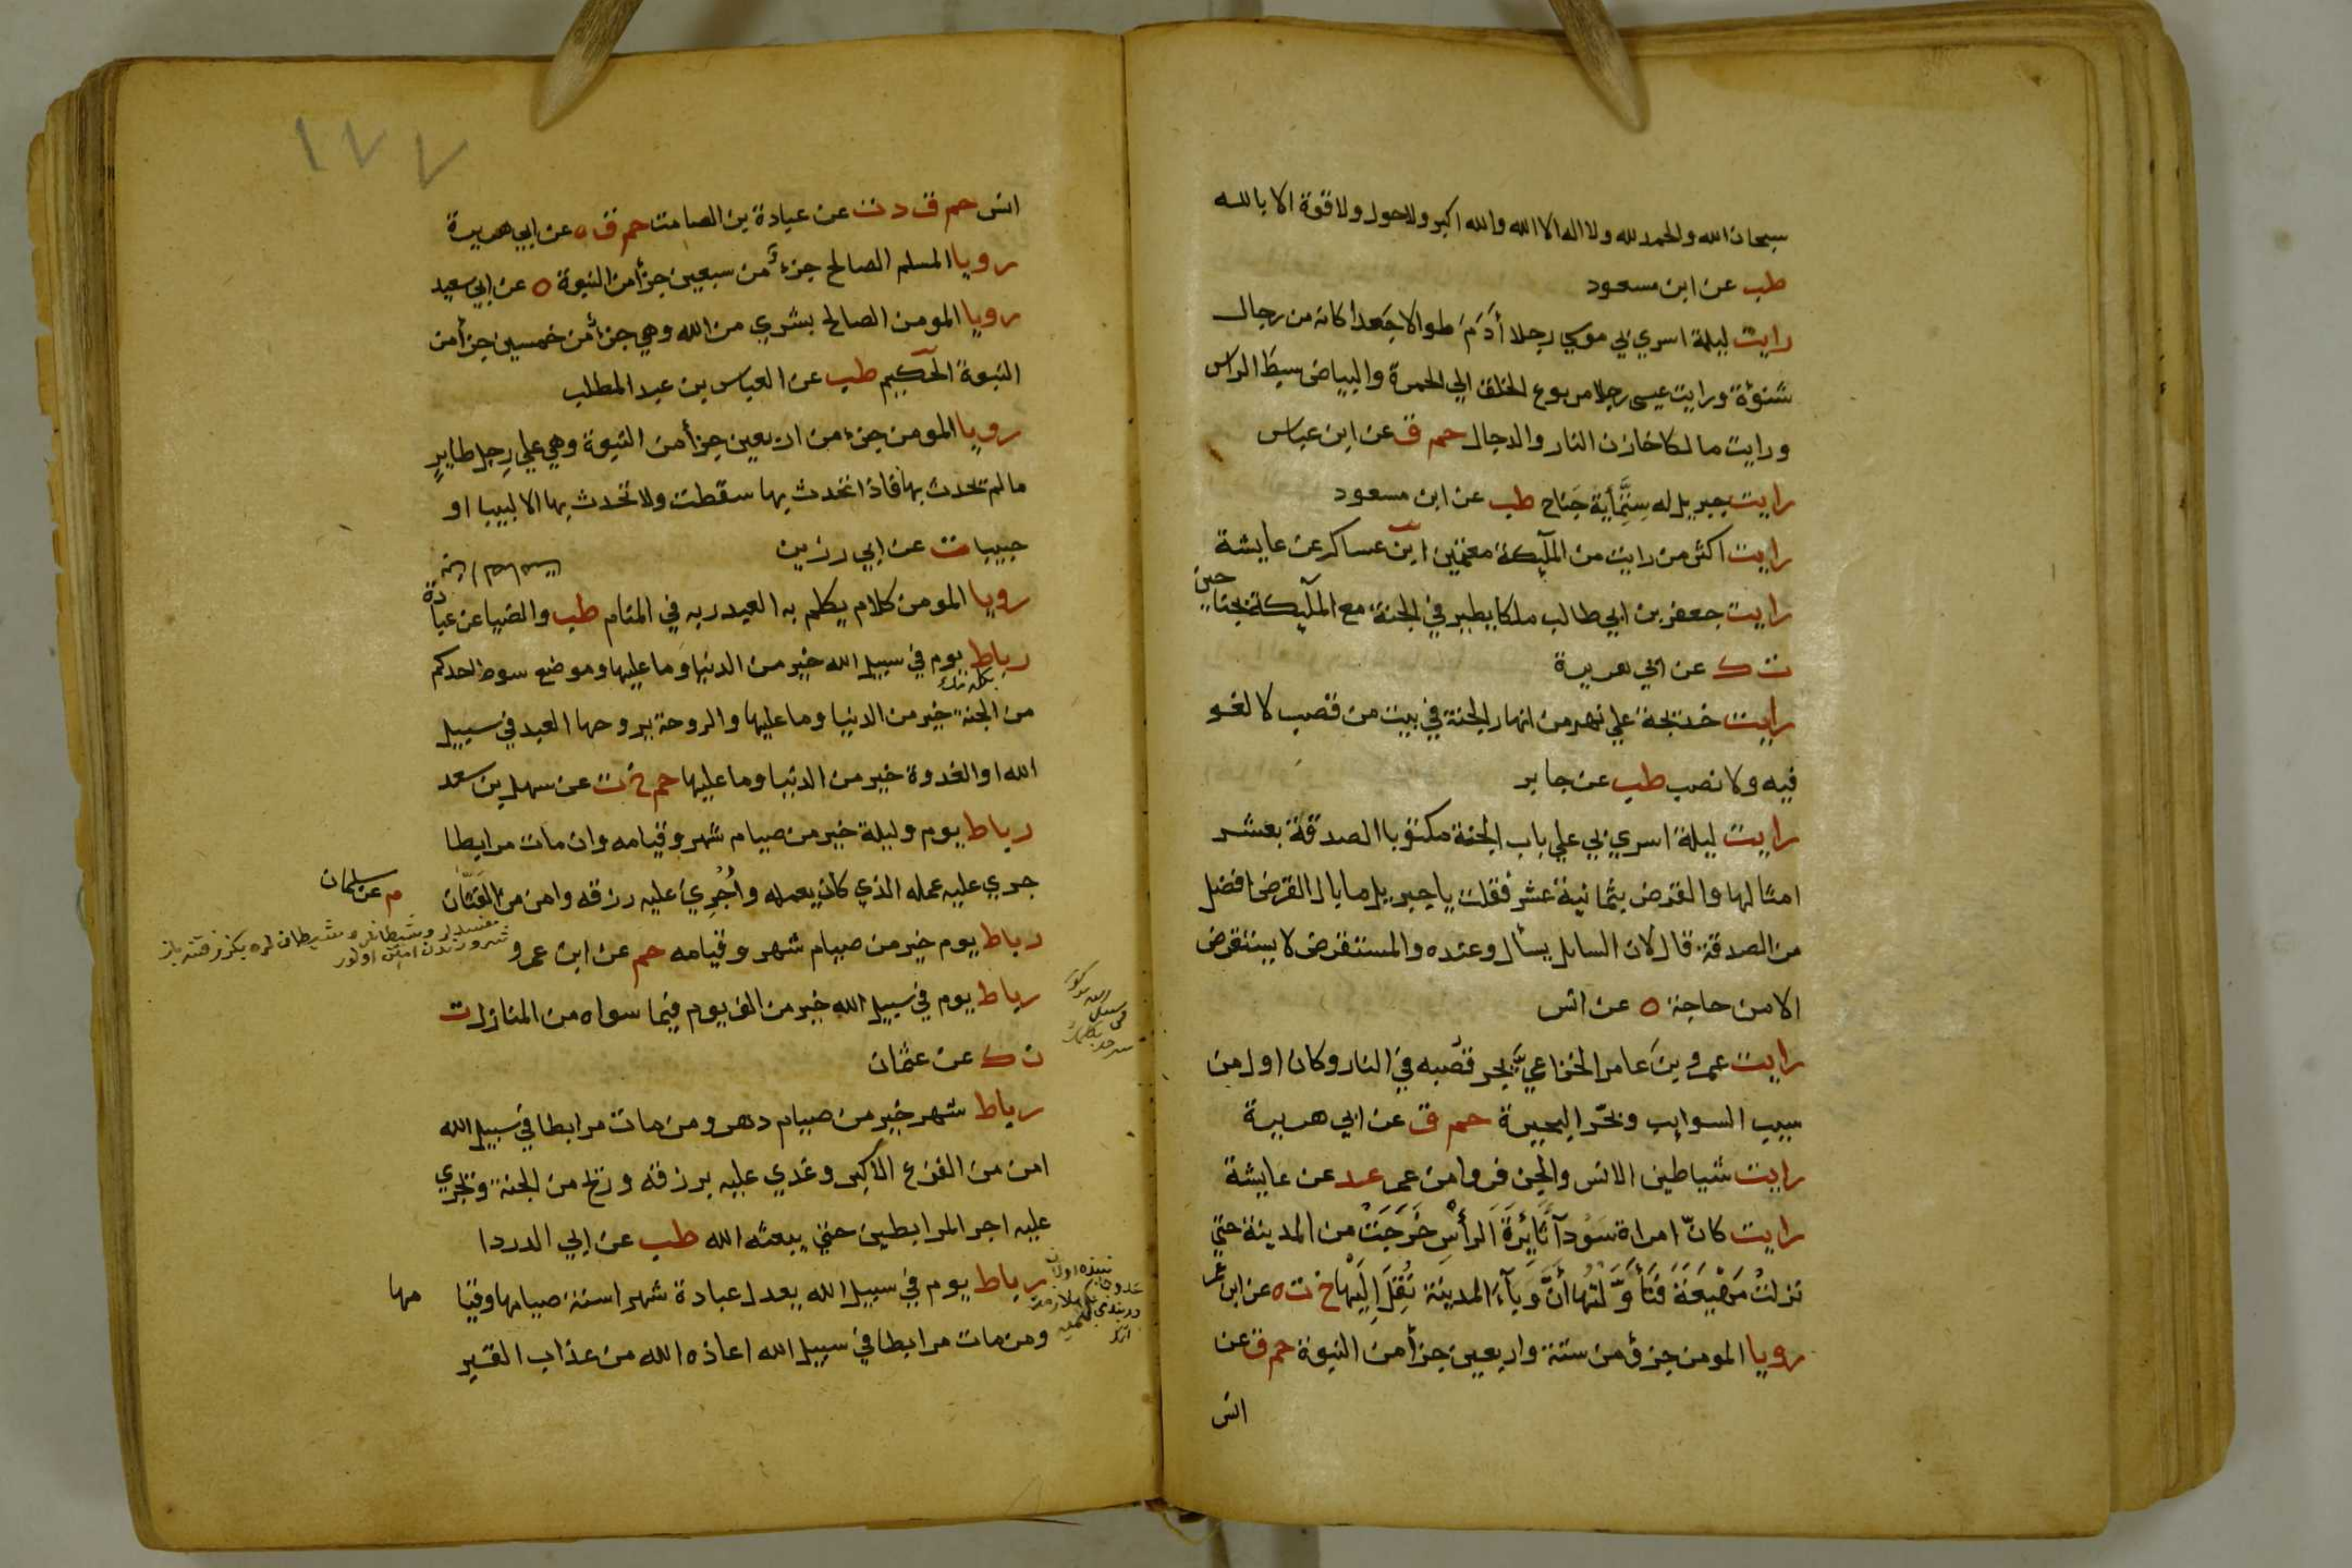 سبحان الله والحمد لله ولا اله الا الله والله اكبر ولا حول ولا قوة الا بالله
طب عن ابن مسعود
رايت ليلة اسري بي موسي رجلا أدَمَ طوالا جَعدا كانه من رجال
شنؤة ورايت عيسى رجلا مربوع الخلق الي الحمرة والبياض سبط الراس
ورايت مالكا خازن النار والدجال حم ق عن ابن عباس
رايت جبريل له ستمأية جَناح طب عن ابن مسعود
رايت اكثر من رايت من الملٓيكة معتمين ابن عساكر عن عايشة
رايت جعفر بن ابي طالب ملكا يطير في الجنة مع الملٓيكة بجناحين
ت ك عن ابي هريرة
رايت خديجة علي نهر من انهار الجنة في بيت من قصب لا لغو
فيه ولا نصب طب عن جابر
رايت ليلة اسري بي علي باب الجنة مكتوبا الصدقة بعشر
امثالها والقرض بثمانية عشر فقلت يا جبريل ما بال القرض افضل
من الصدقة قال لان السايل يسأل وعنده والمستقرض لا يستقرض
الا من حاجة ه عن انس
رايت عمرو بن عامر الخزاعي يجر قصبه في النار وكان اول من
سيب السوايب وبحّر البحيرة حم ق عن ابي هريرة
رايت شياطين الانس والجن فروا من عمر عد عن عايشة
رايت كانّ امراة سَوْدآ ثَايِرَةَ الرأسِ خَرَجَتْ من المدينة حتي
نزلتْ مَهْيَعَةَ فَتَأَوَّلتُها أنَّ وَبَآءَ المدينة نُقِلَ اِلَيْها خ ت ه عن ابن عمر
رويا المومن جزؤ من ستة واربعين جزأ من النبوة حم ق عن
انس
١٧٧
انس حم ق د ت عن عبادة بن الصامت حم ق ه عن ابي هريرة
رويا المسلم الصالح جزءٌ من سبعين جزأ من النبوة ه عن ابي سعيد
رويا المومن الصالح بشري من الله وهي جزأ من خمسين جزأ من
النبوة الحكيم طب عن العباس بن عبد المطلب
رويا المومن جزء من اربعين جزأ من النبوة وهي علي رِجل طايرٍ
ما لم يحدث بها فاذا تحدث بها سقطت ولا تحدث بها الا لبيبا او
حبيبا ت عن ابي رزين
رويا المومن كلام يكلم به العبد ربه في المنام طب والضيا عن عبادة
رباط يوم في سبيل الله خير من الدنيا وما عليها وموضع سوط احدكم
من الجنة خير من الدنيا وما عليها والروحة يروحها العبد في سبيل
الله او الغدوة خير من الدنيا وما عليها حم خ ت عن سهل بن سعد
رباط يوم وليلة خير من صيام شهر وقيامه وان مات مرابطا
جري عليه عمله الذي كان يعمله واُجْرِيَ عليه رزقه وامن من الفَتّان
م عن سلمان
رباط يوم خير من صيام شهر وقيامه حم عن ابن عمرو
رباط يوم في سبيل الله خير من الف يوم فيما سواه من المنازل ت
ن ك عن عثمان
رباط شهر خير من صيام دهر ومن مات مرابطا في سبيل الله
امن من الفزع الاكبر وغدي عليه برزقه وريح من الجنة ويجري
عليه اجر المرابطين حتي يبعثه الله طب عن ابي الدردا
رباط يوم في سبيل الله يعدل عبادة شهر او سنة صيامها وقيا
مها
ومن مات مرابطا في سبيل الله اعاذه الله من عذاب القبر